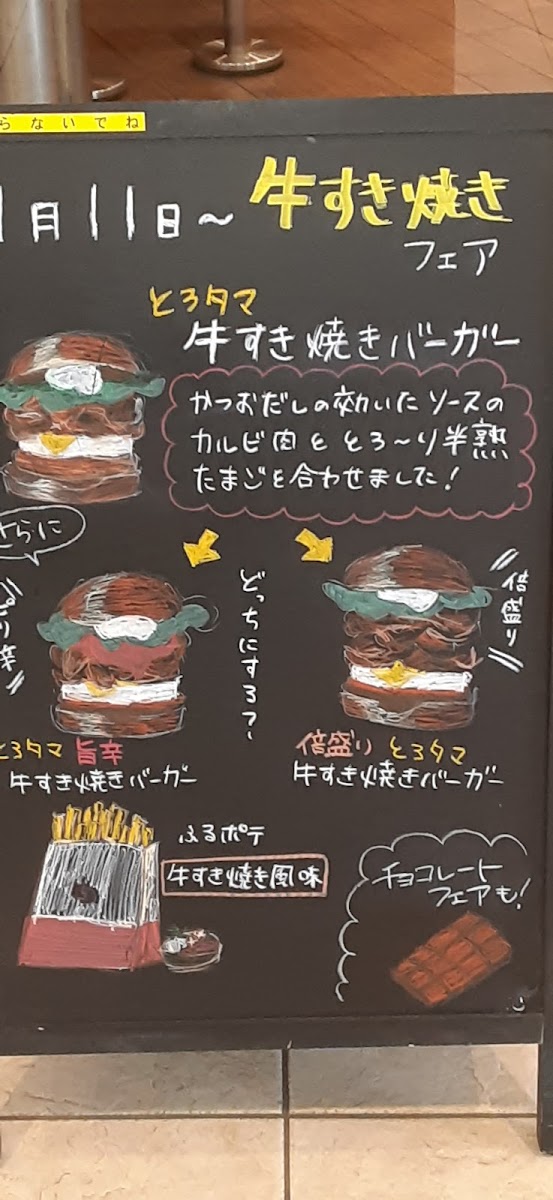 らないでね
1月11日～
牛すき焼き
フェア
とろタマ
牛すき焼きバーガー
かつおだしの効いたソースの
カルビ肉ととろ〜り半熟
たまごを合わせました！
さらに
どっちにする？
倍盛り
とろタマ 旨辛
牛すき焼きバーガー
倍盛り とろタマ
牛すき焼きバーガー
ふるポテ
牛すき焼き風味
チョコレート
フェアも！